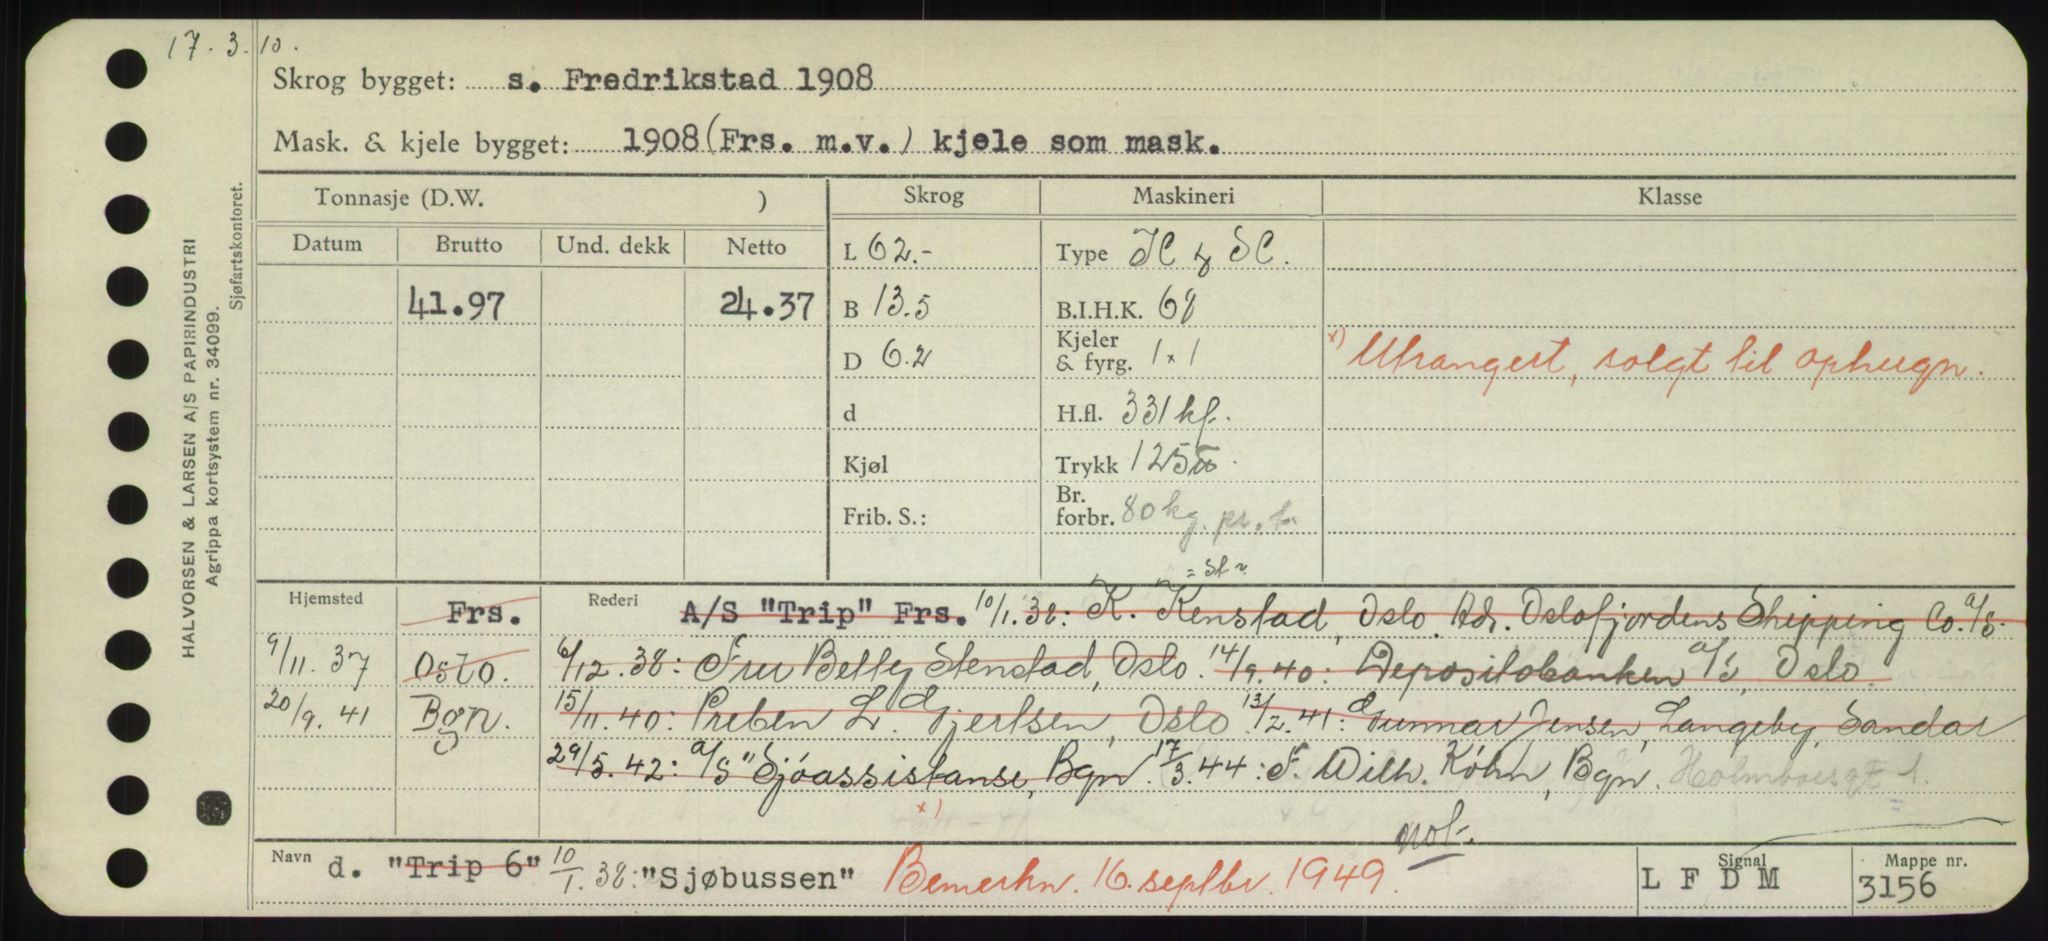 17. 3. 10.
Skrog bygget: s. Fredrikstad 1908
Mask. & kjele bygget: 1908 (Frs. m.v.) kjele som mask.
Tonnasje (D.W. ) Skrog Maskineri Klasse
Datum Brutto Und. dekk Netto L 62.- Type
41.97 24.37 B 13.5 B.I.H.K. 68
D 6.2 Kjeler & fyrg. 1x1 x) Utrangert, solgt til ophugn.
d H.fl. 331 kf.
Kjøl Trykk 125
Frib. S.: Br. forbr. 80 kg. pr. t.
Hjemsted Frs. Rederi A/S "Trip" Frs. 10/1.38: K. Kenstad, Oslo. Adr. Oslofjordens Shipping Co. A/S.
9/11.37 Oslo. 6/12.38: Fru Betty Stenstad, Oslo. 14/9.40: Depositobanken A/S, Oslo.
20/9.41 Bgn. 15/11.40: Preben L. Gjertsen, Oslo. 13/2.41: Gunnar Jensen, Langeby, Sandar
29/5.42: A/S "Sjøassistanse, Bgn. 17/3.44: F. Wilh. Køhn, Bgn. Holmboesgt 1.
x)
not.
Navn d. "Trip 6" 10/1.38: "Sjøbussen" Bemerkn. 16. septbr. 1949. Signal L F D M Mappe nr. 3156
HALVORSEN & LARSEN A/S PAPIRINDUSTRI
Agrippa kortsystem nr. 34099.
Sjøfartskontoret.